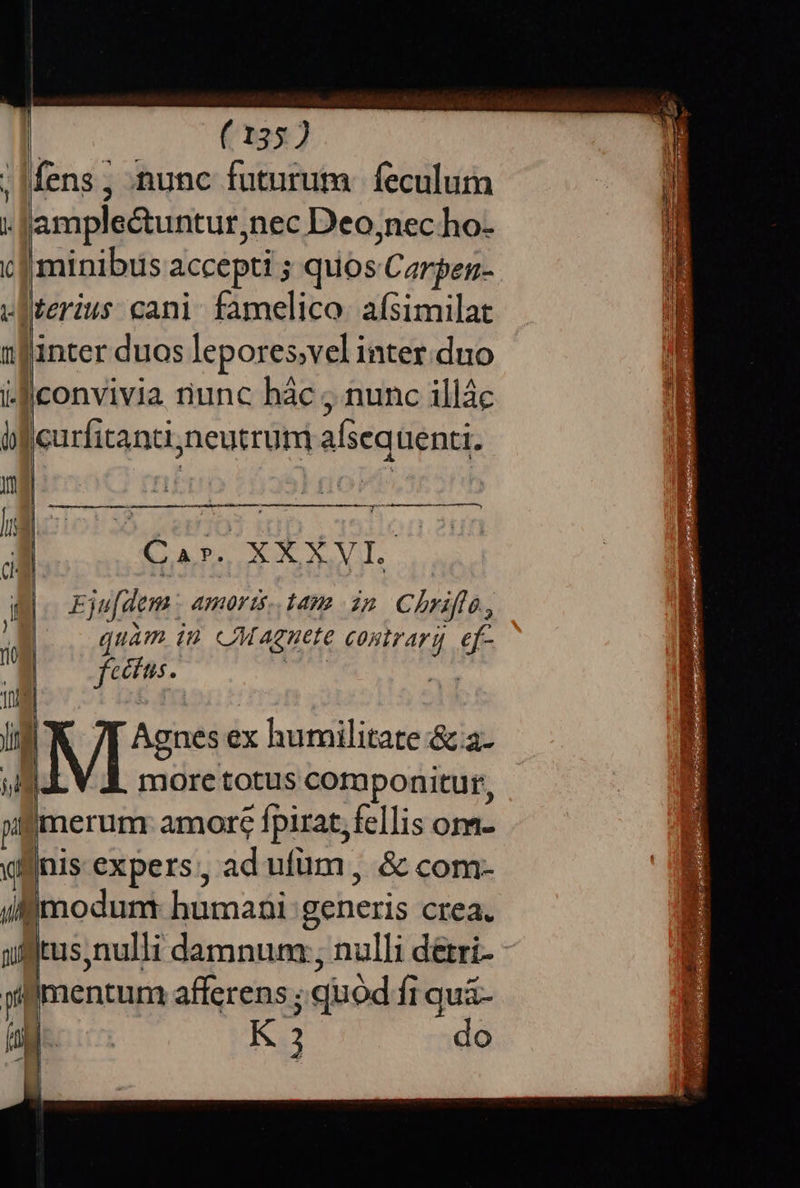 (135)
ſens, nunc futurum ſeculum
amplectuntur, nec Deo, nec ho-
minibus accepti; quos Carpen-
terius cani famelico aſsimilat
inter duos lepores, vel inter duo
convivia nunc hâc, nunc illâc
curſitanti, neutrum aſsequenti.
CAP. XXXVI.
Ejuſdem amoris tam in Chriſto,
quàm in Magnete contrarij ef-
fectus.
MAgnes ex humilitate & a-
more totus componitur,
merum amorē ſpirat, fellis om-
nis expers, ad uſum, & com-
modum humani generis crea-
tus, nulli damnum, nulli detri-
mentum afferens; quòd ſi quā-
K 3 do